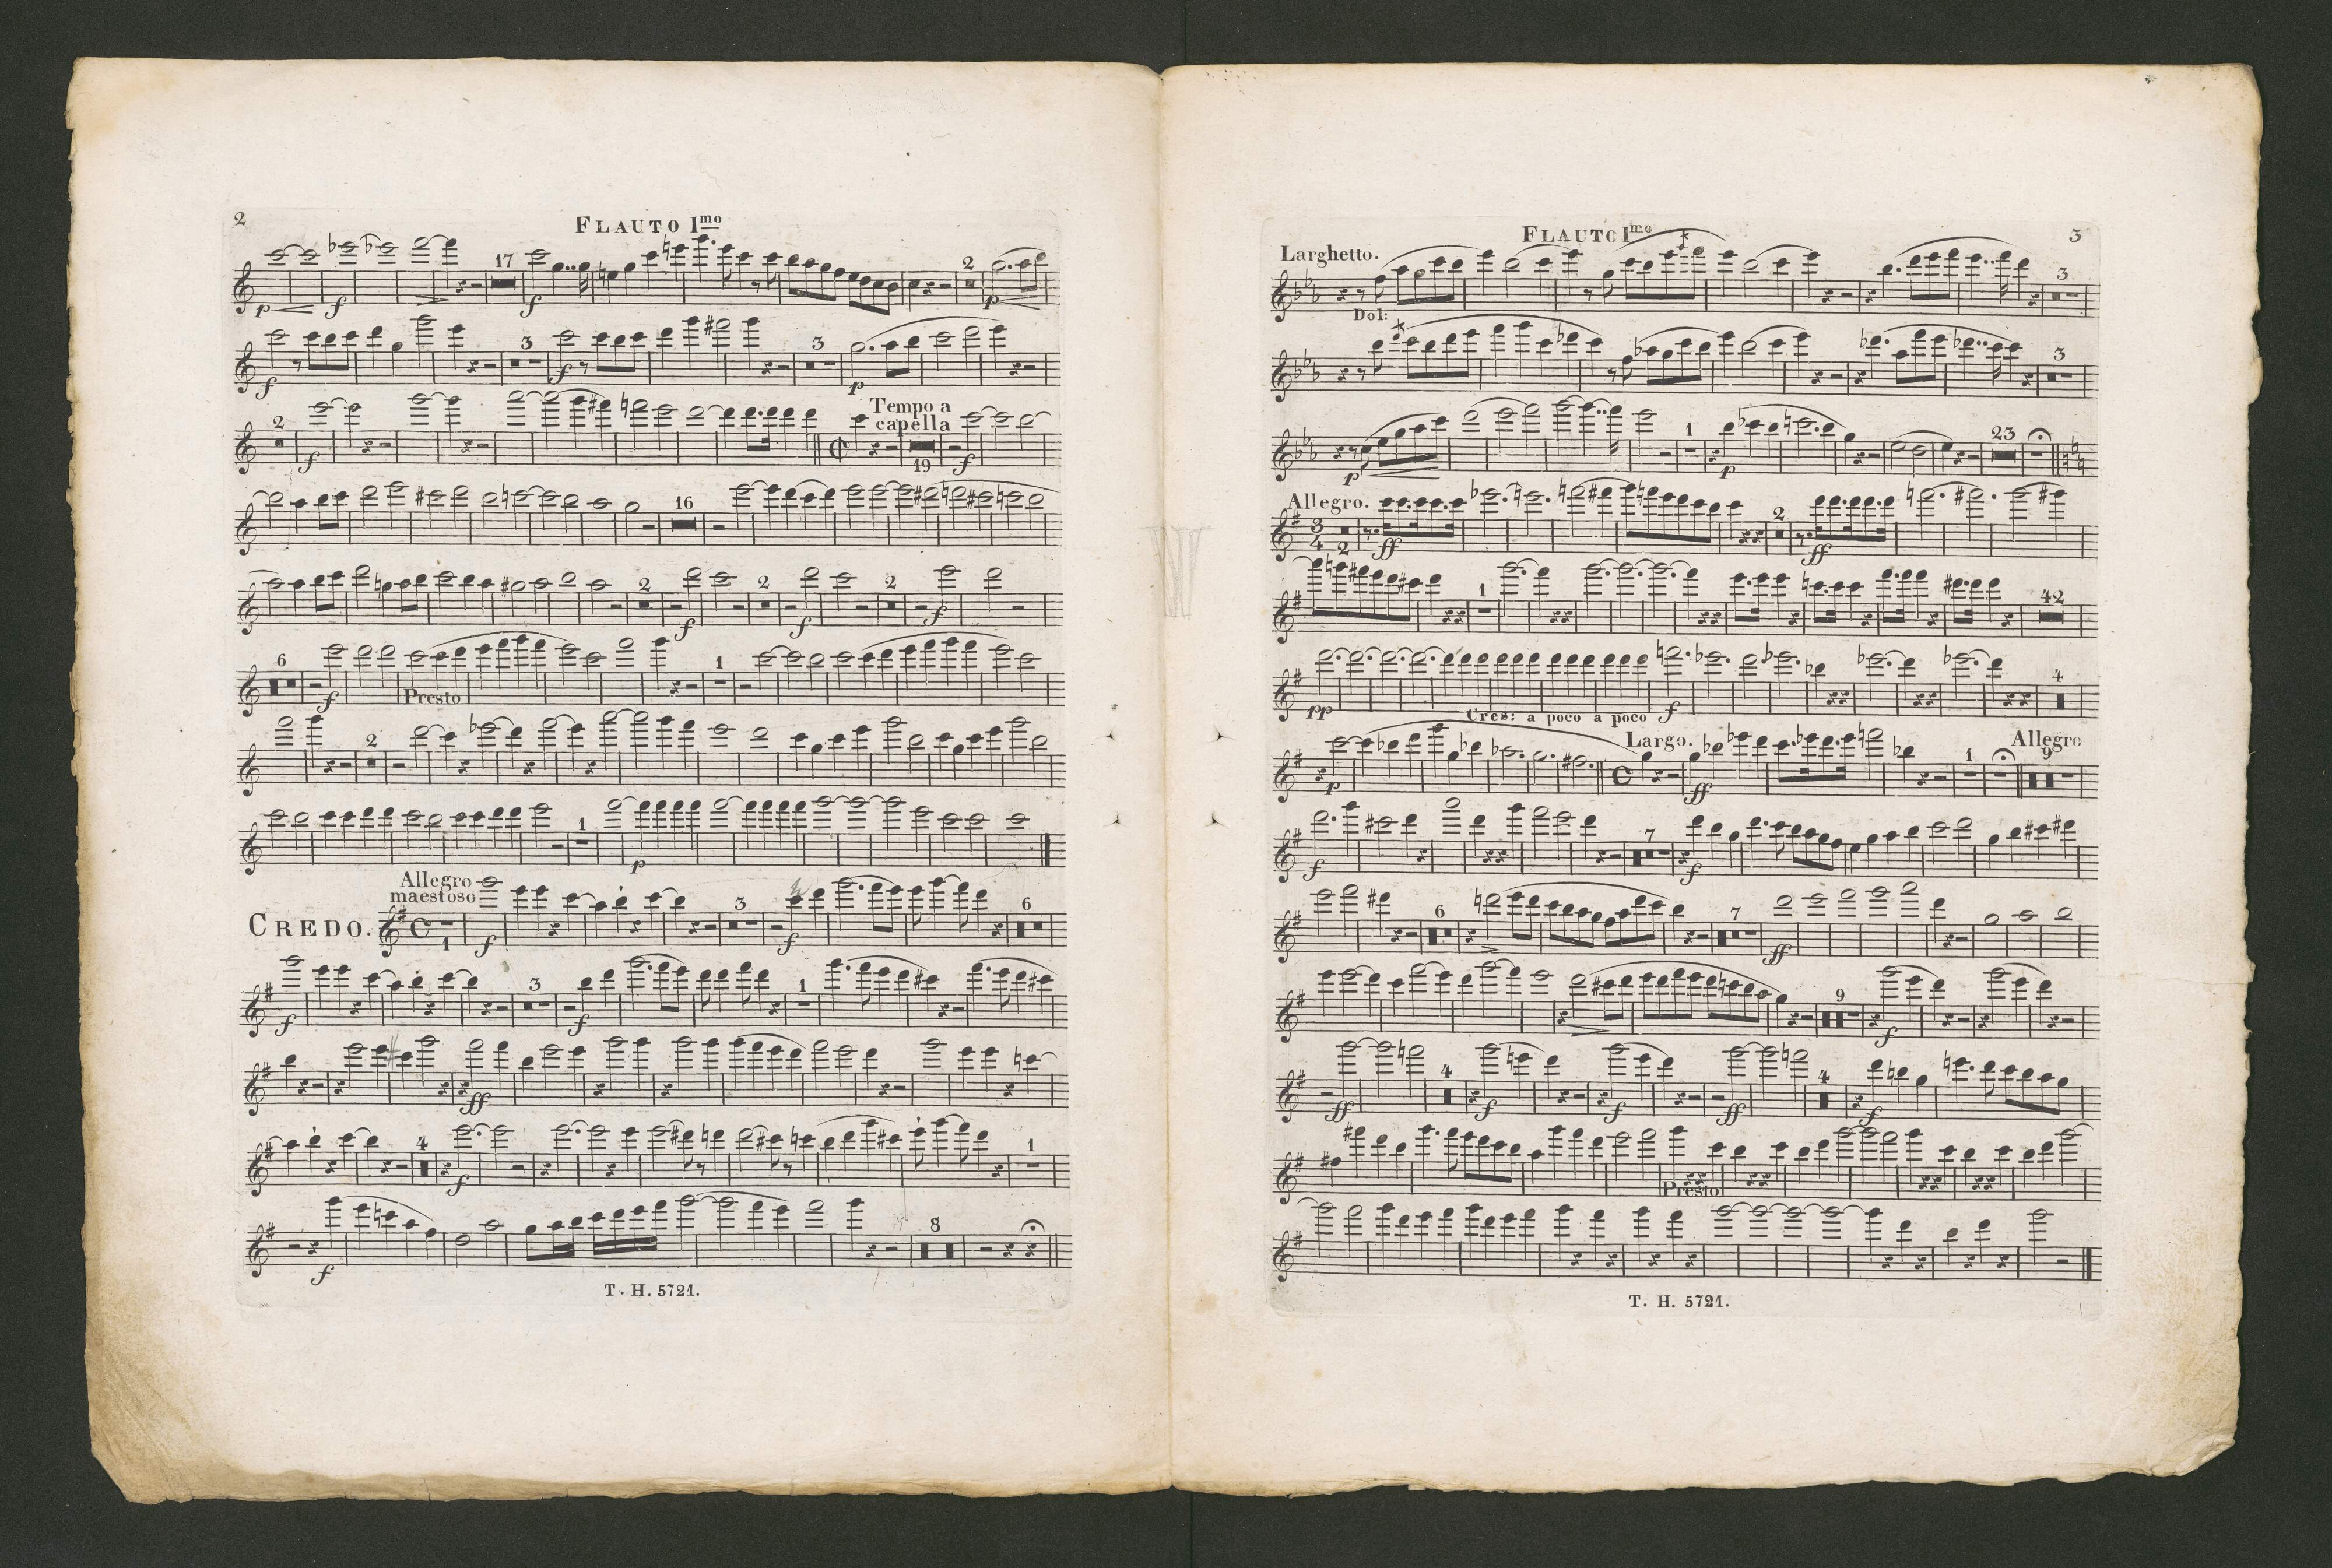 2
FLAUTO Imo
17
2
p f f p
3 3
f f p
2 Tempo a
capella
f 19 f
16
2 2 2
f f f
6 1
f Presto
2
1
p
Allegro
maestoso
CREDO. 3 6
1 f f
3 1
f f
ff
4 1
f
8
f
T. H. 5721.
3
FLAUTO Imo
Larghetto.
3
Dol:
3
1 23
p p
Allegro. 2
3
4 2 ff ff
1 42
4
pp Cres: a poco a poco f
Largo. 1 Allegro
9
p ff
7
f f
6 7
ff
9
f
4 4
ff f f ff f
Presto
T. H. 5721.